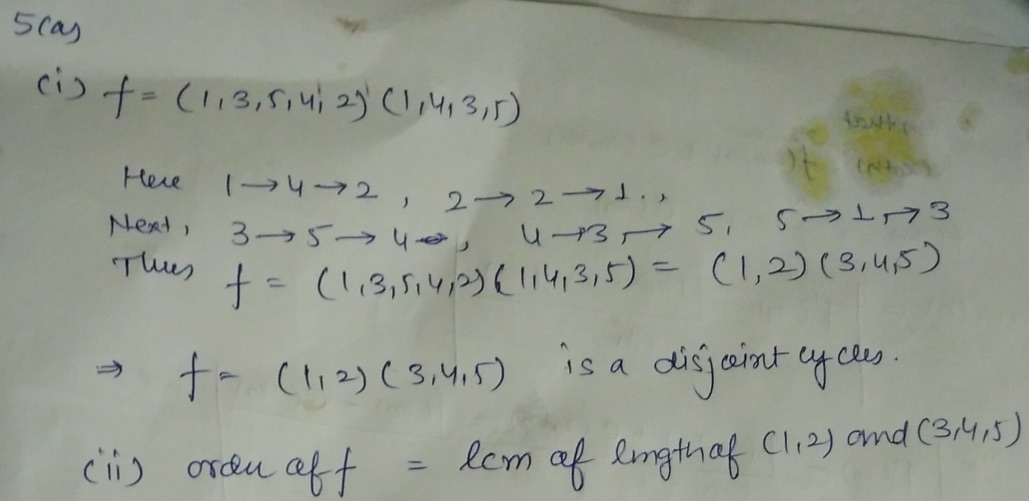 5(a)
(i) f = (1,3,5,4,2) (1,4,3,5)
Here 1→4→2, 2→2→1.,
Next, 3→5→4, 4→3→5, 5→1→3
Thus f = (1,3,5,4,2)(1,4,3,5) = (1,2)(3,4,5)
⇒ f = (1,2)(3,4,5) is a disjoint cycles.
(ii) order of f = lcm of length of (1,2) and (3,4,5)